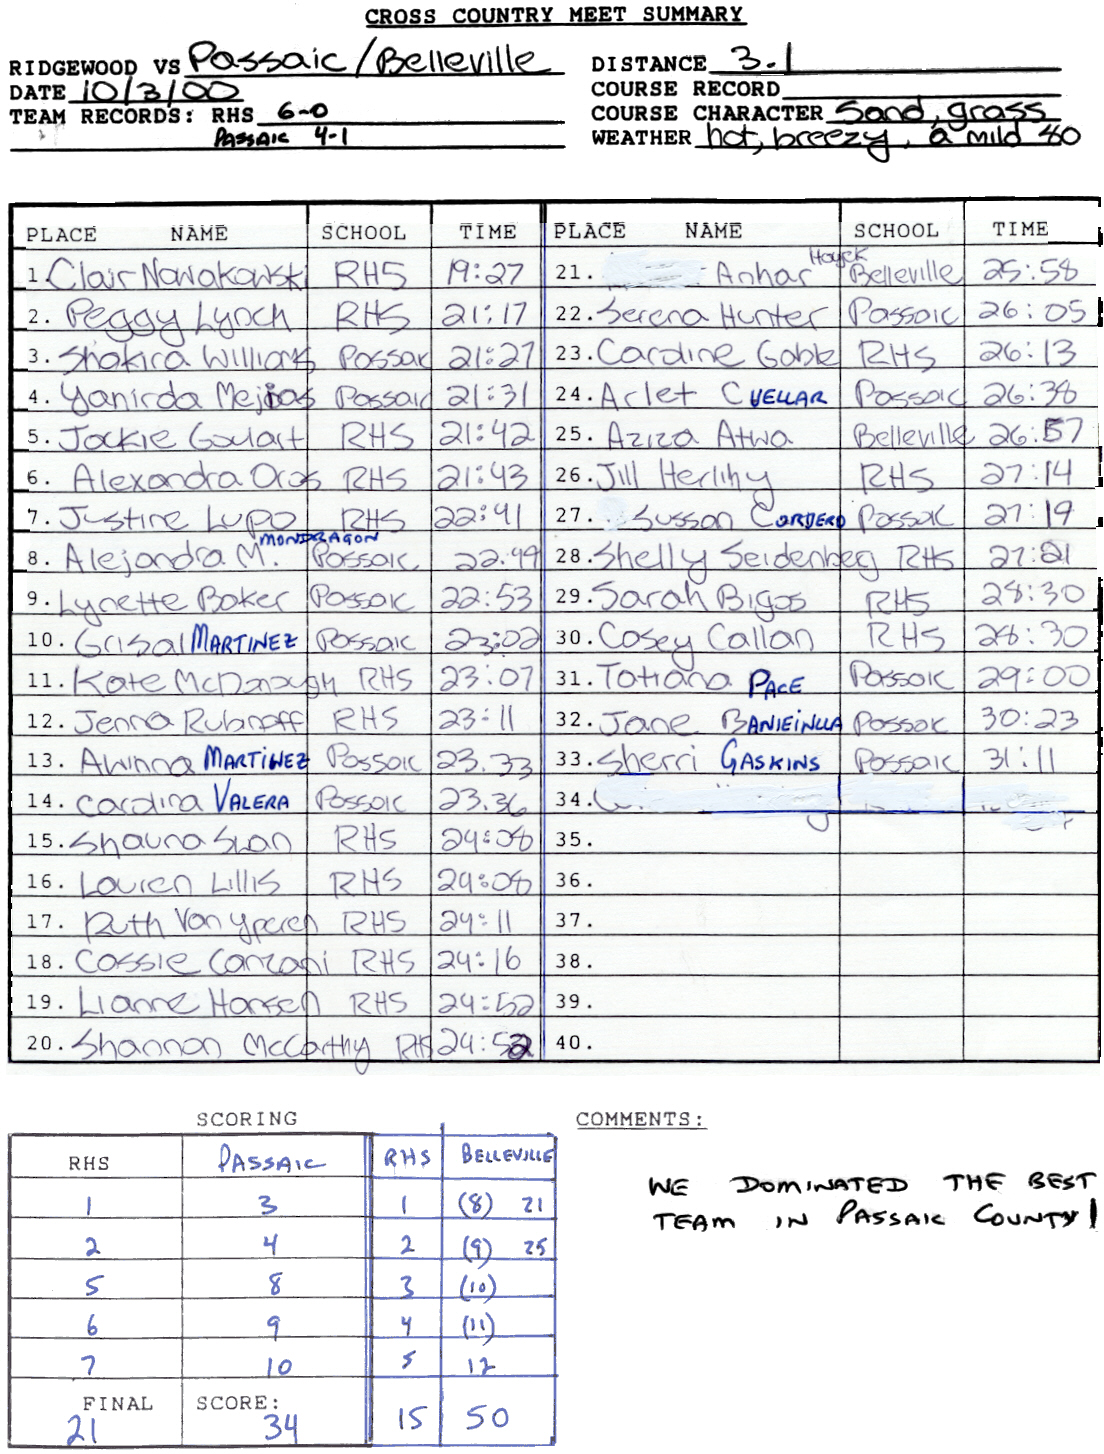 CROSS COUNTRY MEET SUMMARY
RIDGEWOOD VS Passaic/Belleville
DATE 10/3/00
TEAM RECORDS: RHS 6-0
PASSAIC 4-1
DISTANCE 3.1
COURSE RECORD
COURSE CHARACTER Sand, grass
WEATHER hot, breezy, a mild 80
PLACE NAME SCHOOL TIME
1. Clair Nowakowski RHS 19:27
2. Peggy Lynch RHS 21:17
3. Shakira Williams Passaic 21:27
4. Yanirda Mejias Passaic 21:31
5. Jackie Goulart RHS 21:42
6. Alexandra Oras RHS 21:43
7. Justine Lupo RHS 22:41
8. Alejandra M. MONDRAGON Passaic 22:49
9. Lynette Baker Passaic 22:53
10. Grisal MARTINEZ Passaic 23:02
11. Kate McDonough RHS 23:07
12. Jenna Rubanoff RHS 23:11
13. Awinna MARTINEZ Passaic 23.33
14. Carolina VALERA Passaic 23.36
15. Shauna Sloan RHS 24:08
16. Lauren Lillis RHS 24:08
17. Ruth Van yperen RHS 24:11
18. Cassie Canzani RHS 24:16
19. Lianne Hansen RHS 24:52
20. Shannon McCarthy RHS 24:52
PLACE NAME SCHOOL TIME
21. Anhar Hayek Belleville 25:58
22. Serena Hunter Passaic 26:05
23. Caroline Goble RHS 26:13
24. Arlet CUELLAR Passaic 26:38
25. Aziza Atwa Belleville 26:57
26. Jill Herlihy RHS 27:14
27. Susson CORDERO Passaic 27:19
28. Shelly Seidenberg RHS 27:21
29. Sarah Bigos RHS 28:30
30. Casey Callan RHS 28:30
31. Tatiana PACE Passaic 29:00
32. Jane Passaic 30:23
33. Sherri GASKINS Passaic 31:11
34.
35.
36.
37.
38.
39.
40.
SCORING
RHS PASSAIC RHS BELLEVILLE
1 3 1 (8) 21
2 4 2 (9) 25
5 8 3 (10)
6 9 4 (11)
7 10 5 12
FINAL SCORE:
21 34 15 50
COMMENTS:
WE DOMINATED THE BEST
TEAM IN PASSAIC COUNTY!